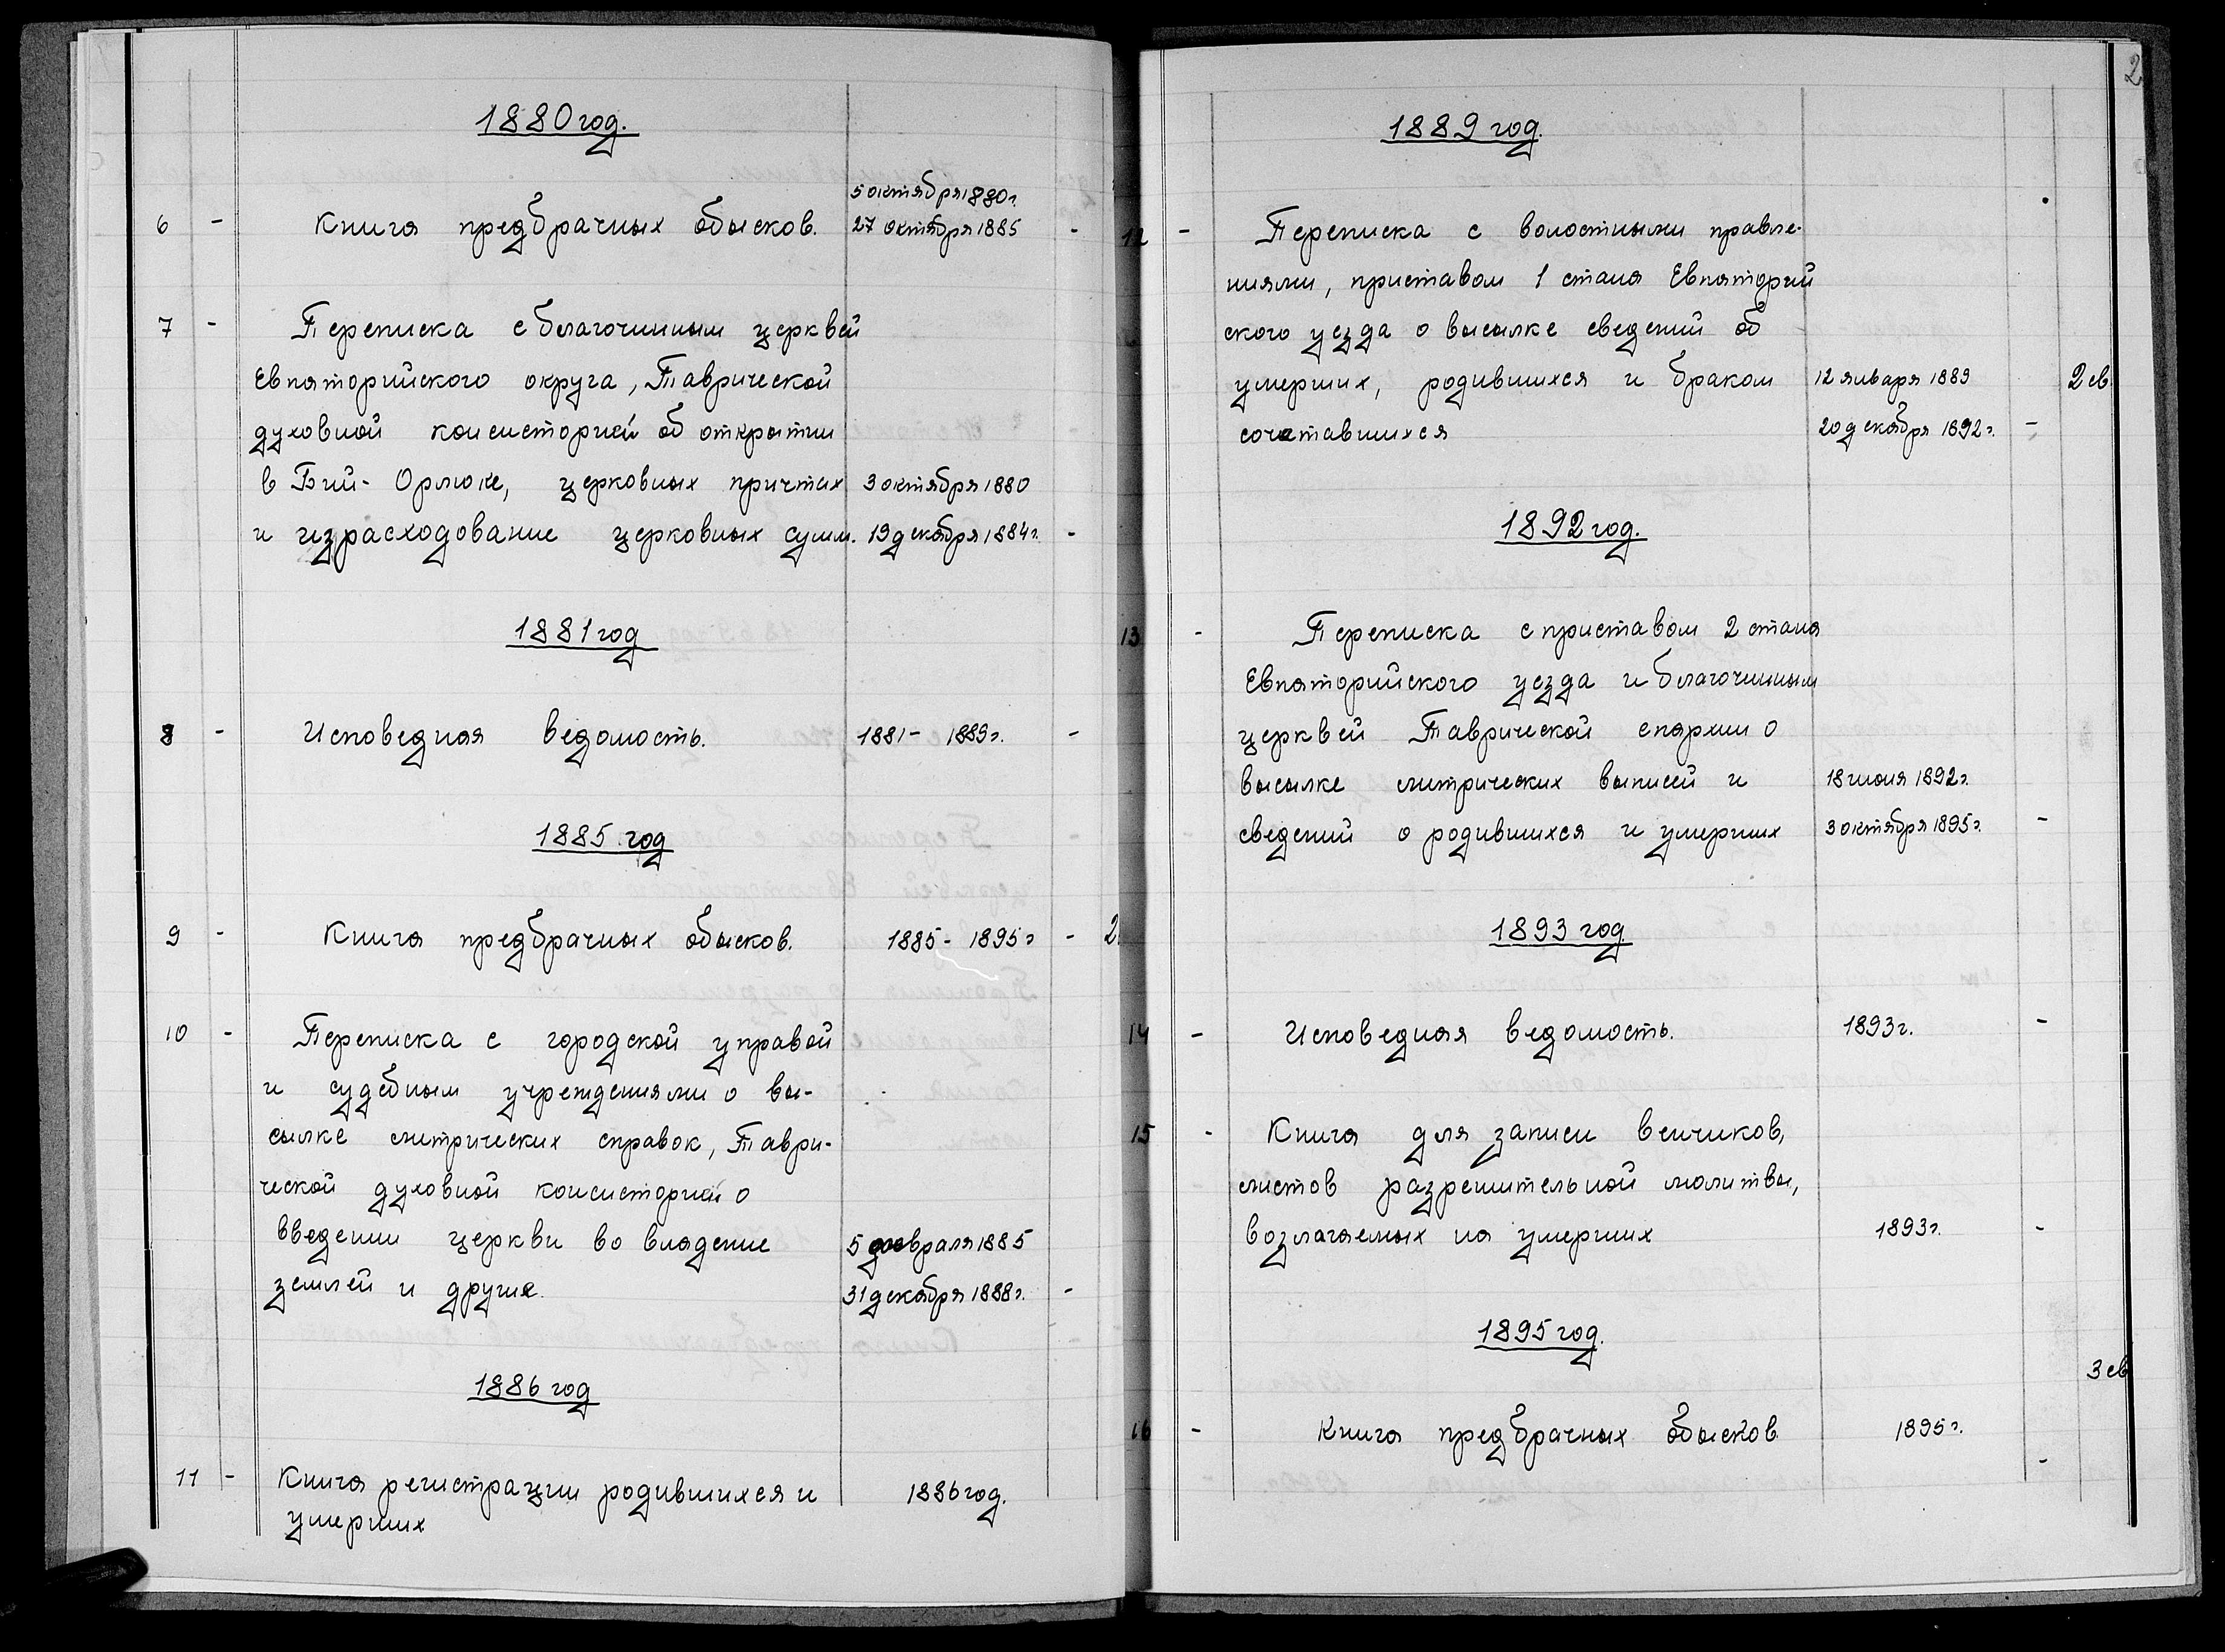 1880 год.
5 октября 1880г.
6 - Книга предбрачных обысков. 27 октября 1885 -
7 - Переписка с благочинным церквей
Евпаторийского округа, Таврической
духовной консисторией об открытии
в Бий-Орлюке, церковных причтах 3 октября 1880
и израсходование церковных сумм. 19 декабря 1884г. -
1881 год
8 - Исповедная ведомость. 1881 - 1889г. -
1885 год
9 - Книга предбрачных обысков. 1885 - 1895г - 2
10 - Переписка с городской управой
и судебным учреждениями о вы-
сылке метрических справок, Таври-
ческой духовной консисторией о
введении церкви во владение 5 февраля 1885
землей и другие. 31 декабря 1888г. -
1886 год
11 - Книга регистрации родившихся и 1886 год.
умерших
2
1889 год.
12 - Переписка с волостными правле-
ниями, приставом 1 стана Евпаторий
ского уезда о высылке сведений об
умерших, родившихся и браком 12 января 1889 2 св
сочетавшихся 20 декабря 1892г. -
1892 год.
13 - Переписка с приставом 2 стана
Евпаторийского уезда и благочинным
церквей Таврической епархии о
высылке метрических выписей и 18 июня 1892г.
сведений о родившихся и умерших 3 октября 1895г. -
1893 год
14 - Исповедная ведомость. 1893г. -
15 - Книга для записи венчиков,
листов разрешительной молитвы,
возлагаемых на умерших 1893г. -
1895 год.
3 св
16 - Книга предбрачных обысков 1895г. -